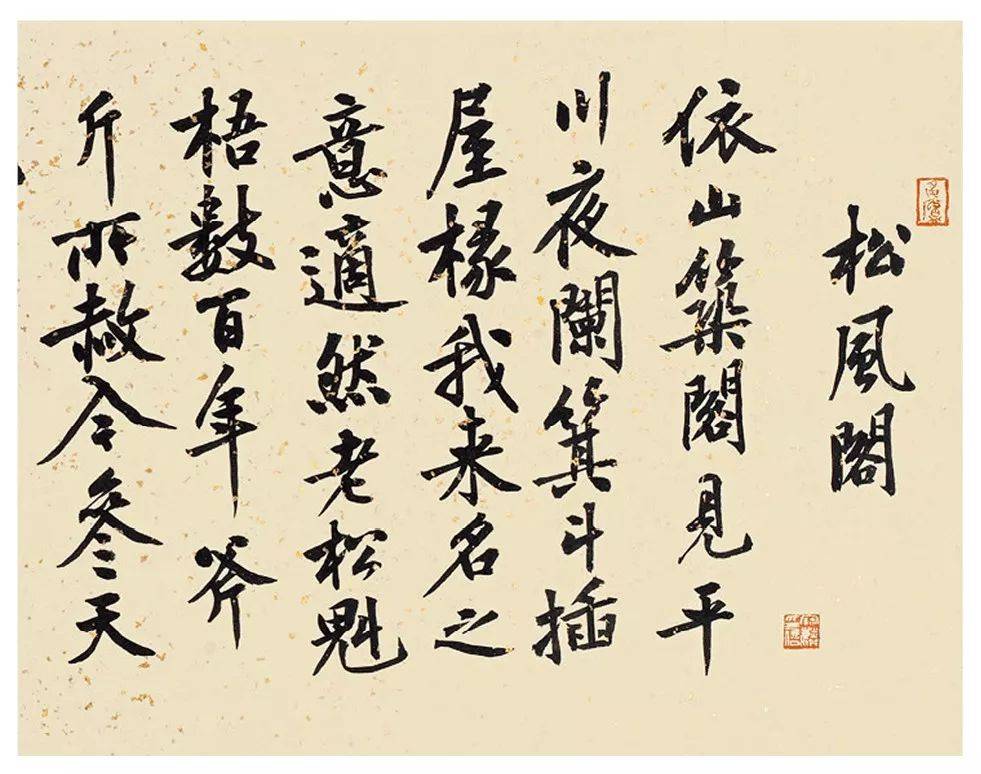 松風閣
依山築閣見平
川夜闌箕斗插
屋椽我来名之
意適然老松魁
梧數百年斧
斤所赦今参天